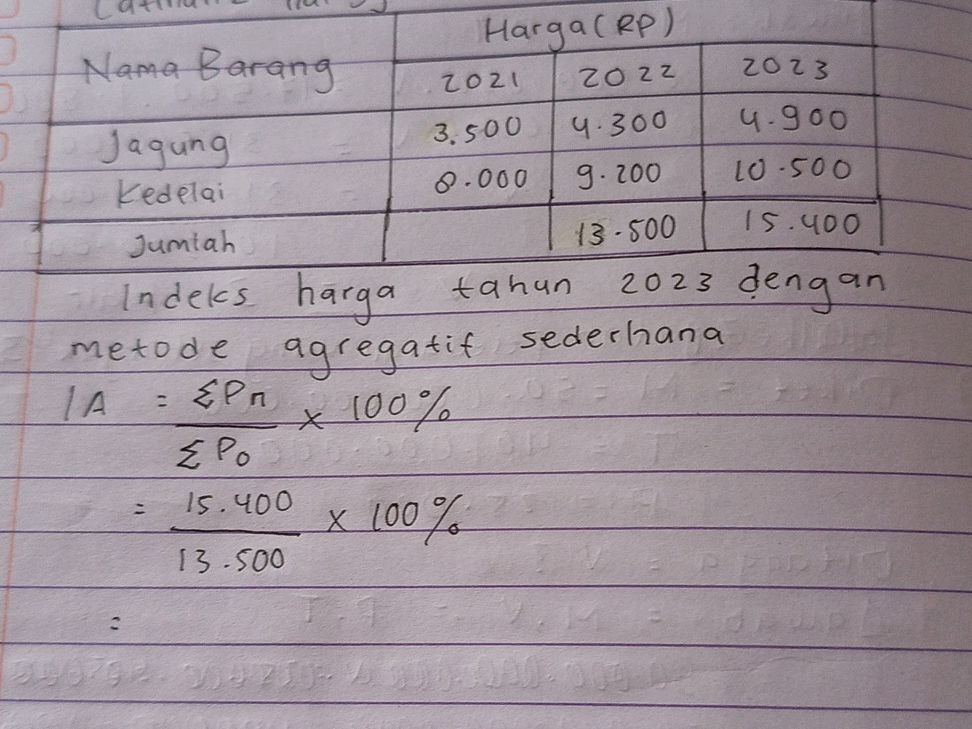 Harga (RP)
Nama Barang
2021 2022 2023
Jagung 3.500 4.300 4.900
Kedelai 8.000 9.200 10.500
Jumlah 13.500 15.400
Indeks harga tahun 2023 dengan
metode agregatif sederhana
IA = ΣPn / ΣPo × 100%
= 15.400 / 13.500 × 100%
=